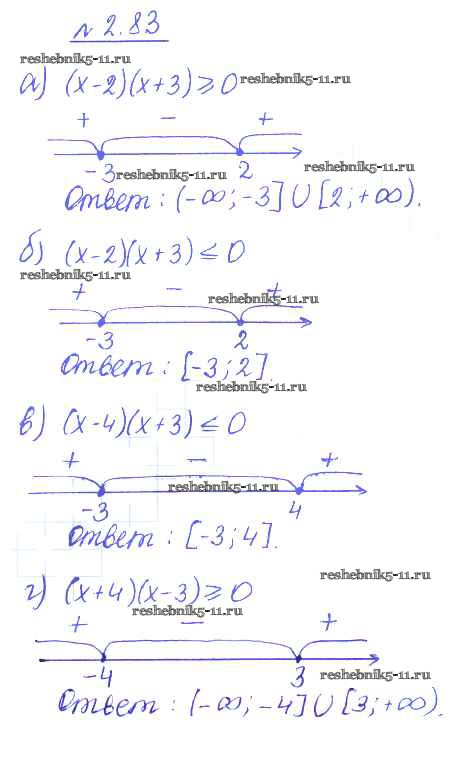 № 2.83
reshebnik5-11.ru
а) (x-2)(x+3) ≥ 0 reshebnik5-11.ru
+ − +
-3 reshebnik5-11.ru 2 reshebnik5-11.ru
Ответ: (-∞; -3] ∪ [2; +∞).
б) (x-2)(x+3) ≤ 0
reshebnik5-11.ru
+ − reshebnik5-11.ru +
-3 2
Ответ: [-3; 2].
reshebnik5-11.ru
в) (x-4)(x+3) ≤ 0
+ − +
reshebnik5-11.ru
-3 4
Ответ: [-3; 4].
reshebnik5-11.ru
г) (x+4)(x-3) ≥ 0
reshebnik5-11.ru
+ − +
-4 3 reshebnik5-11.ru
Ответ: (-∞; -4] ∪ [3; +∞).